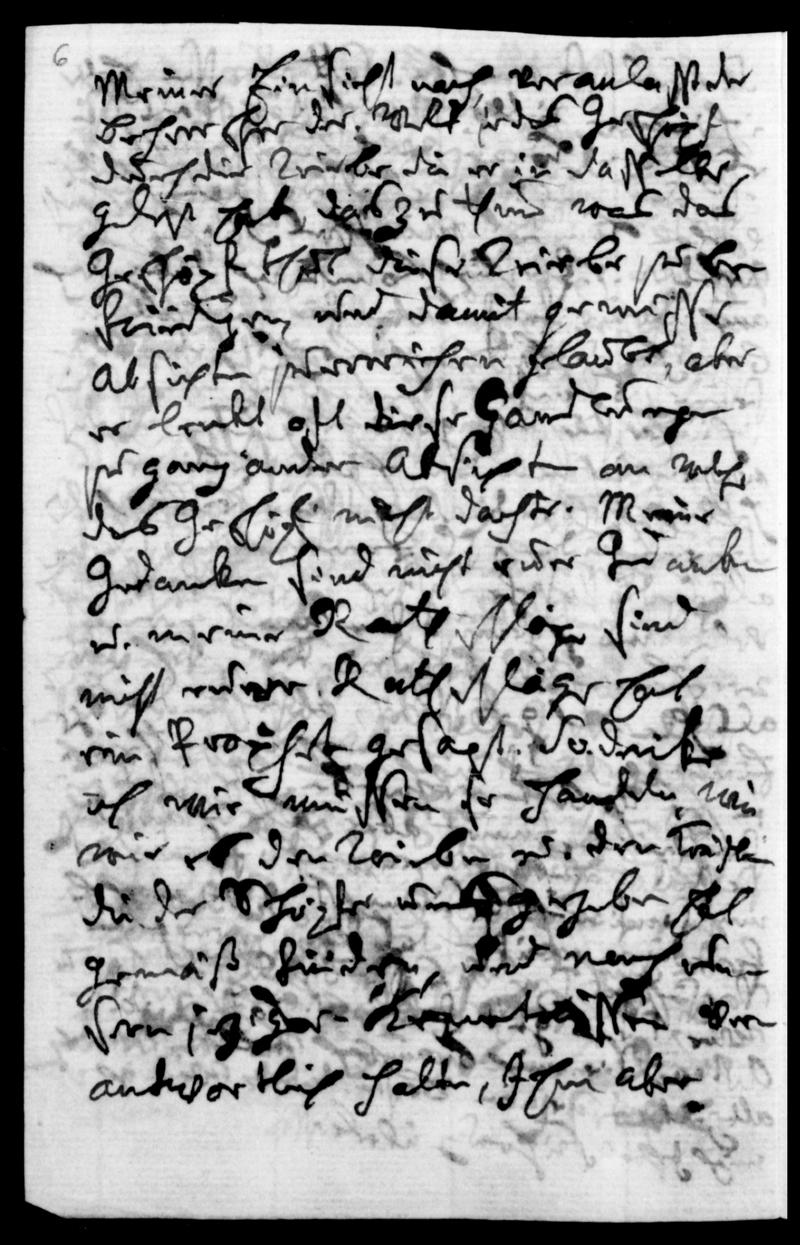 6
Meiner Einsicht nach, veranlasst der
Beherrscher der Welt jedes Geschöpf
durch die Triebe die er in dasselbe
gelegt hat, das zu thun was das
Geschöpf thut diese Triebe zu be
friedigen und damit gewisse
Absichten zu erreichen glaubt, aber
er lenkt oft diese Handlungen
zu ganz andern Absichten an welche
das Geschöpf nicht dachte. Meine
Gedanken sind nicht eure Gedanken
u. meine Rathschläge sind
nicht eure Rathschläge hat
ein Prophet gesagt. So denke
ich wir müssen so handeln, wie
wir es den Trieben u. den Kräften
die der Schöpfer uns gegeben hat
gemäß finden, und nach un
sern jezigen Kenntnissen ver
antwortlich halten, Ihm aber